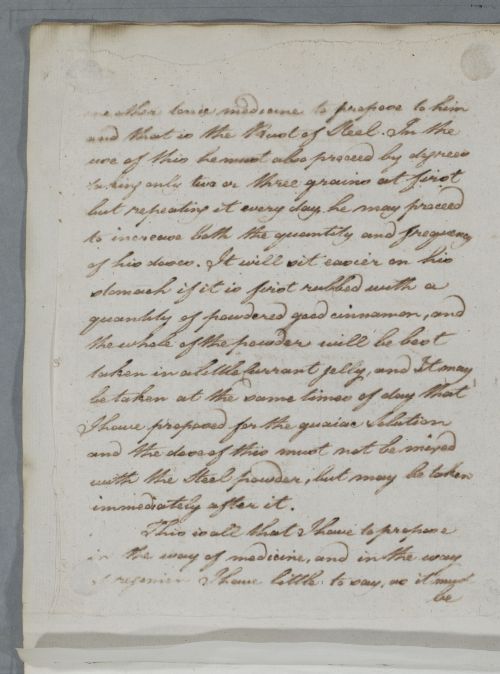 one other tonic medicine to propose to him
and that is the Rust of Steel. In the
use of this he must also proceed by degrees
taking only two or three grains at first
but repeating it every day, he may proceed
to increase both the quantity and frequency
of his doses. It will sit easier on his
stomach if it is first rubbed with a
quantity of powdered good cinnamon, and
the whole of the powder will be best
taken in a little currant jelly, and It may
be taken at the same times of day that
I have proposed for the guaiac Solution
and the dose of this must not be mixed
with the Steel powder, but may be taken
immediately after it.
This is all that I have to propose
in the way of medicine, and in the way
of regimen I have little to say, as it must
be